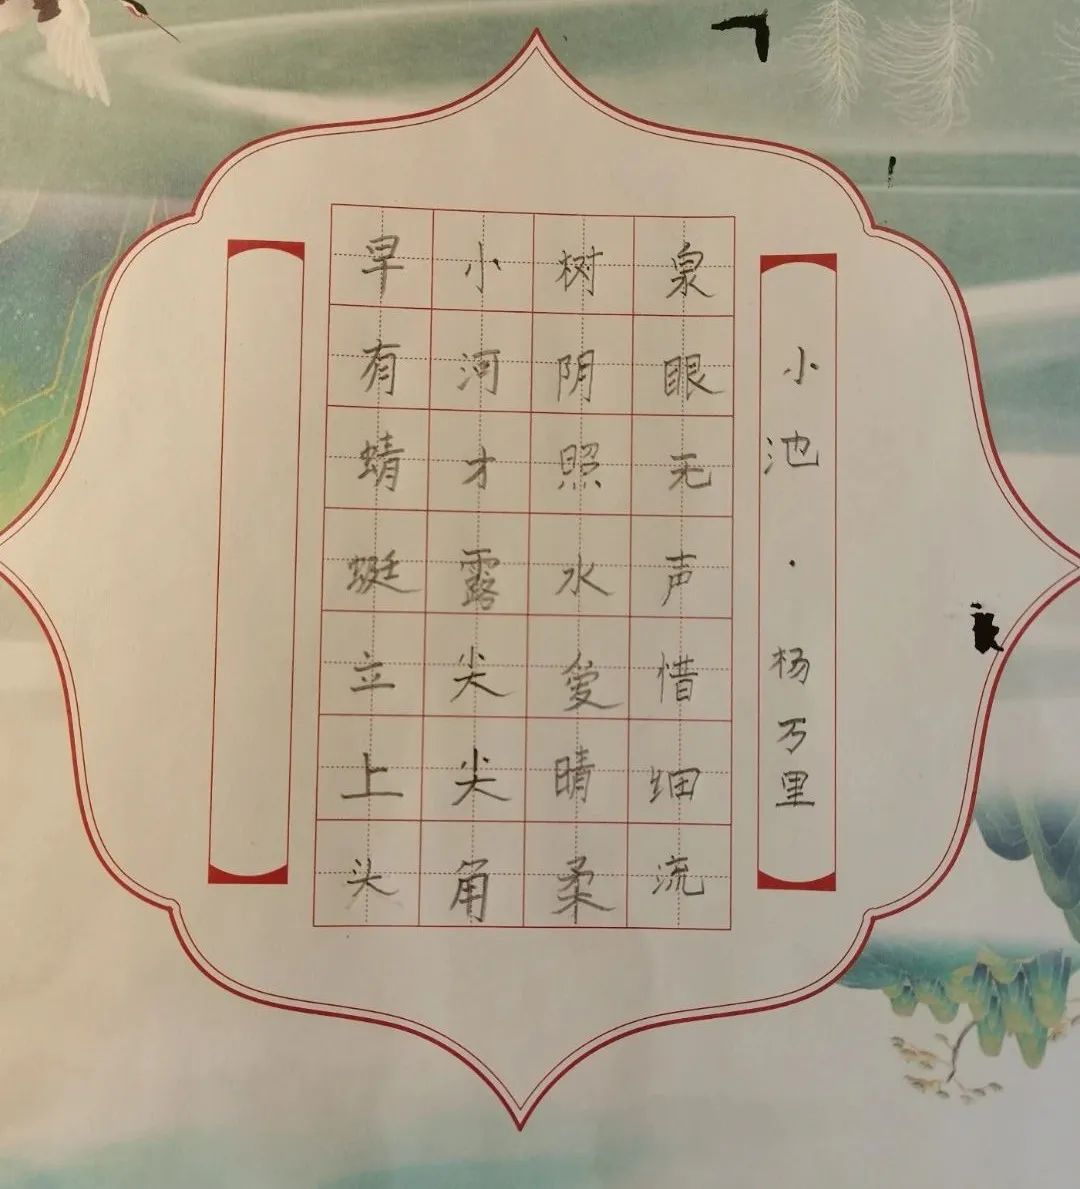 小池·杨万里
泉眼无声惜细流
树阴照水爱晴柔
小河才露尖尖角
早有蜻蜓立上头